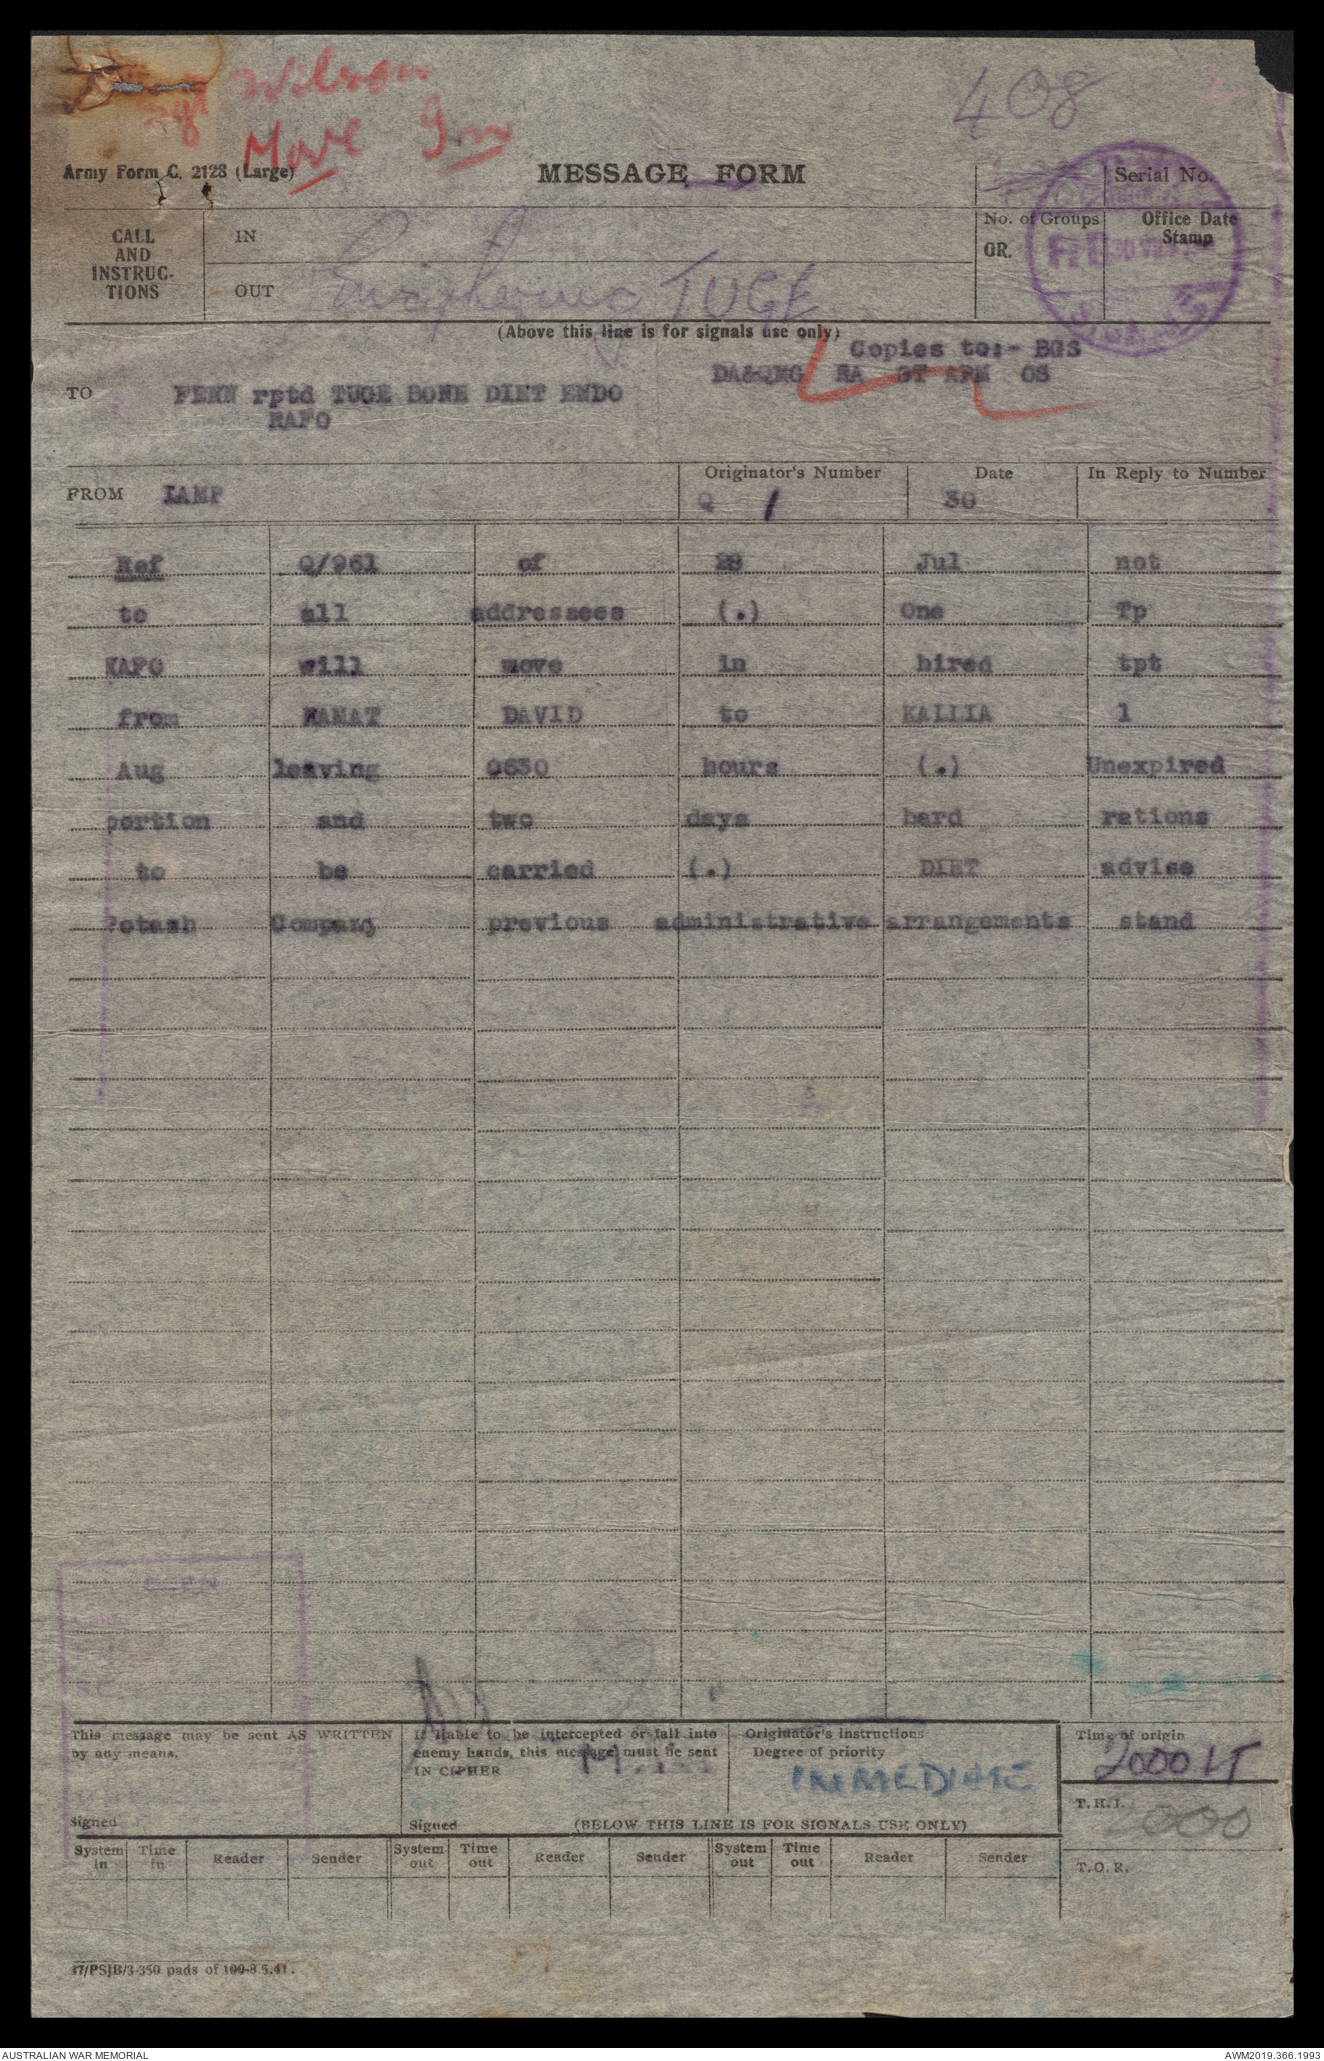 Sgt. Wilson
Move In
408
2
Army Form C. 2128 (Large)
MESSAGE FORM
Serial No.
CALL AND INSTRUC-TIONS
IN
OUT
Enciphering TUGE
No. of Groups
GR.
Office Date Stamp
(Above this line is for signals use only)
Copies to:- BGS
DA&QMG RA ST APM OS
TO
FERN rptd TUGE BONE DIET ENDO
RAFO
FROM
LAMP
Originator's Number
Q 1
Date
30
In Reply to Number
Ref Q/961 of 28 Jul not
to all addressees (.) One Tp
will move in hired tpt
from NAHAT DAVID to KALLIA 1
Aug leaving 0630 hours (.) Unexpired
portion and two days hard rations
to be carried (.) DIET advise
Potash Company previous administrative arrangements stand
This message may be sent AS WRITTEN
by any means.
Signed
If liable to be intercepted or fall into
enemy hands, this message must be sent
IN CIPHER
Signed
Originator's instructions
Degree of priority
IMMEDIATE
(BELOW THIS LINE IS FOR SIGNALS USE ONLY)
Time of origin
2000 LT
T.H.I.
T.O.R.
System in
Time in
Reader
Sender
System out
Time out
Reader
Sender
System out
Time out
Reader
Sender
17/PSJB/3-350 pads of 100-8.5.41.
AUSTRALIAN WAR MEMORIAL
AWM2019.366.1993